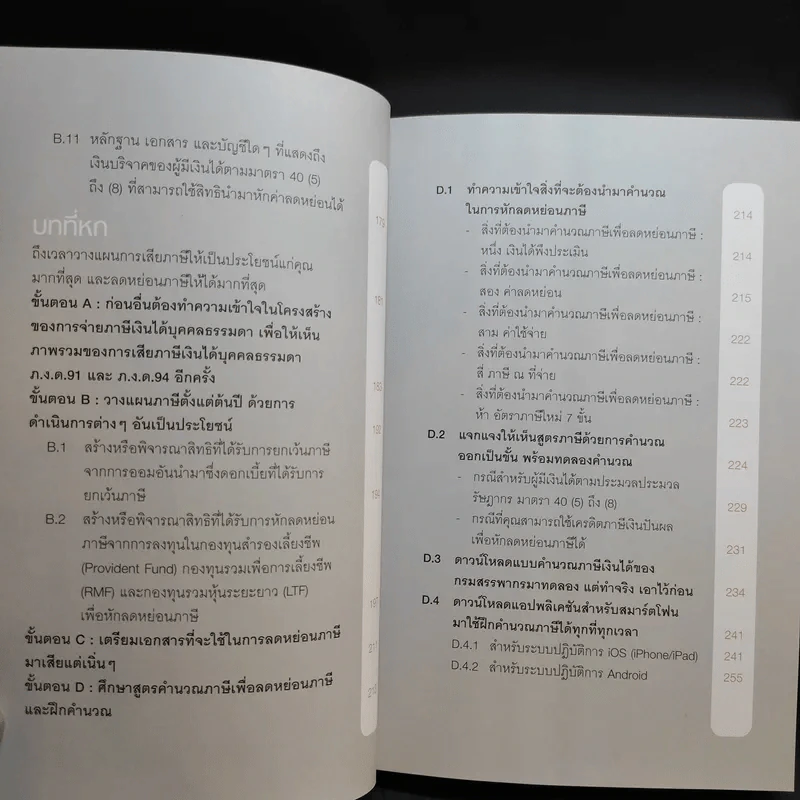 B.11 หลักฐาน เอกสาร และบัญชีใดๆ ที่แสดงถึง
เงินบริจาคของผู้มีเงินได้ตามมาตรา 40 (5)
ถึง (8) ที่สามารถใช้สิทธินำมาหักค่าลดหย่อนได้ 179
บทที่หก
ถึงเวลาวางแผนการเสียภาษีให้เป็นประโยชน์แก่คุณ
มากที่สุด และลดหย่อนภาษีให้ได้มากที่สุด 181
ขั้นตอน A : ก่อนอื่นต้องทำความเข้าใจในโครงสร้าง
ของการจ่ายภาษีเงินได้บุคคลธรรมดา เพื่อให้เห็น
ภาพรวมของการเสียภาษีเงินได้บุคคลธรรมดา
ภ.ง.ด.91 และ ภ.ง.ด.94 อีกครั้ง 183
ขั้นตอน B : วางแผนภาษีตั้งแต่ต้นปี ด้วยการ
ดำเนินการต่างๆ อันเป็นประโยชน์ 192
B.1 สร้างหรือพิจารณาสิทธิที่ได้รับการยกเว้นภาษี
จากการออมอันนำมาซึ่งดอกเบี้ยที่ได้รับการ
ยกเว้นภาษี 194
B.2 สร้างหรือพิจารณาสิทธิที่ได้รับการหักลดหย่อน
ภาษีจากการลงทุนในกองทุนสำรองเลี้ยงชีพ
(Provident Fund) กองทุนรวมเพื่อการเลี้ยงชีพ
(RMF) และกองทุนรวมหุ้นระยะยาว (LTF)
เพื่อหักลดหย่อนภาษี 197
ขั้นตอน C : เตรียมเอกสารที่จะใช้ในการลดหย่อนภาษี
มาเสียแต่เนิ่นๆ
ขั้นตอน D : ศึกษาสูตรคำนวณภาษีเพื่อลดหย่อนภาษี
และฝึกคำนวณ
D.1 ทำความเข้าใจสิ่งที่จะต้องนำมาคำนวณ
ในการหักลดหย่อนภาษี 214
- สิ่งที่ต้องนำมาคำนวณภาษีเพื่อลดหย่อนภาษี :
หนึ่ง เงินได้พึงประเมิน 214
- สิ่งที่ต้องนำมาคำนวณภาษีเพื่อลดหย่อนภาษี :
สอง ค่าลดหย่อน 215
- สิ่งที่ต้องนำมาคำนวณภาษีเพื่อลดหย่อนภาษี :
สาม ค่าใช้จ่าย 222
- สิ่งที่ต้องนำมาคำนวณภาษีเพื่อลดหย่อนภาษี :
สี่ ภาษี ณ ที่จ่าย 222
- สิ่งที่ต้องนำมาคำนวณภาษีเพื่อลดหย่อนภาษี :
ห้า อัตราภาษีใหม่ 7 ขั้น 223
D.2 แจกแจงให้เห็นสูตรภาษีด้วยการคำนวณ
ออกเป็นขั้น พร้อมทดลองคำนวณ 224
- กรณีสำหรับผู้มีเงินได้ตามประมวลประมวล
รัษฎากร มาตรา 40 (5) ถึง (8) 229
- กรณีที่คุณสามารถใช้เครดิตภาษีเงินปันผล
เพื่อหักลดหย่อนภาษีได้ 231
D.3 ดาวน์โหลดแบบคำนวณภาษีเงินได้ของ
กรมสรรพากรมาทดลอง แต่ทำจริง เอาไว้ก่อน 234
D.4 ดาวน์โหลดแอปพลิเคชันสำหรับสมาร์ตโฟน
มาใช้ฝึกคำนวณภาษีได้ทุกที่ทุกเวลา 241
D.4.1 สำหรับระบบปฏิบัติการ iOS (iPhone/iPad) 241
D.4.2 สำหรับระบบปฏิบัติการ Android 255